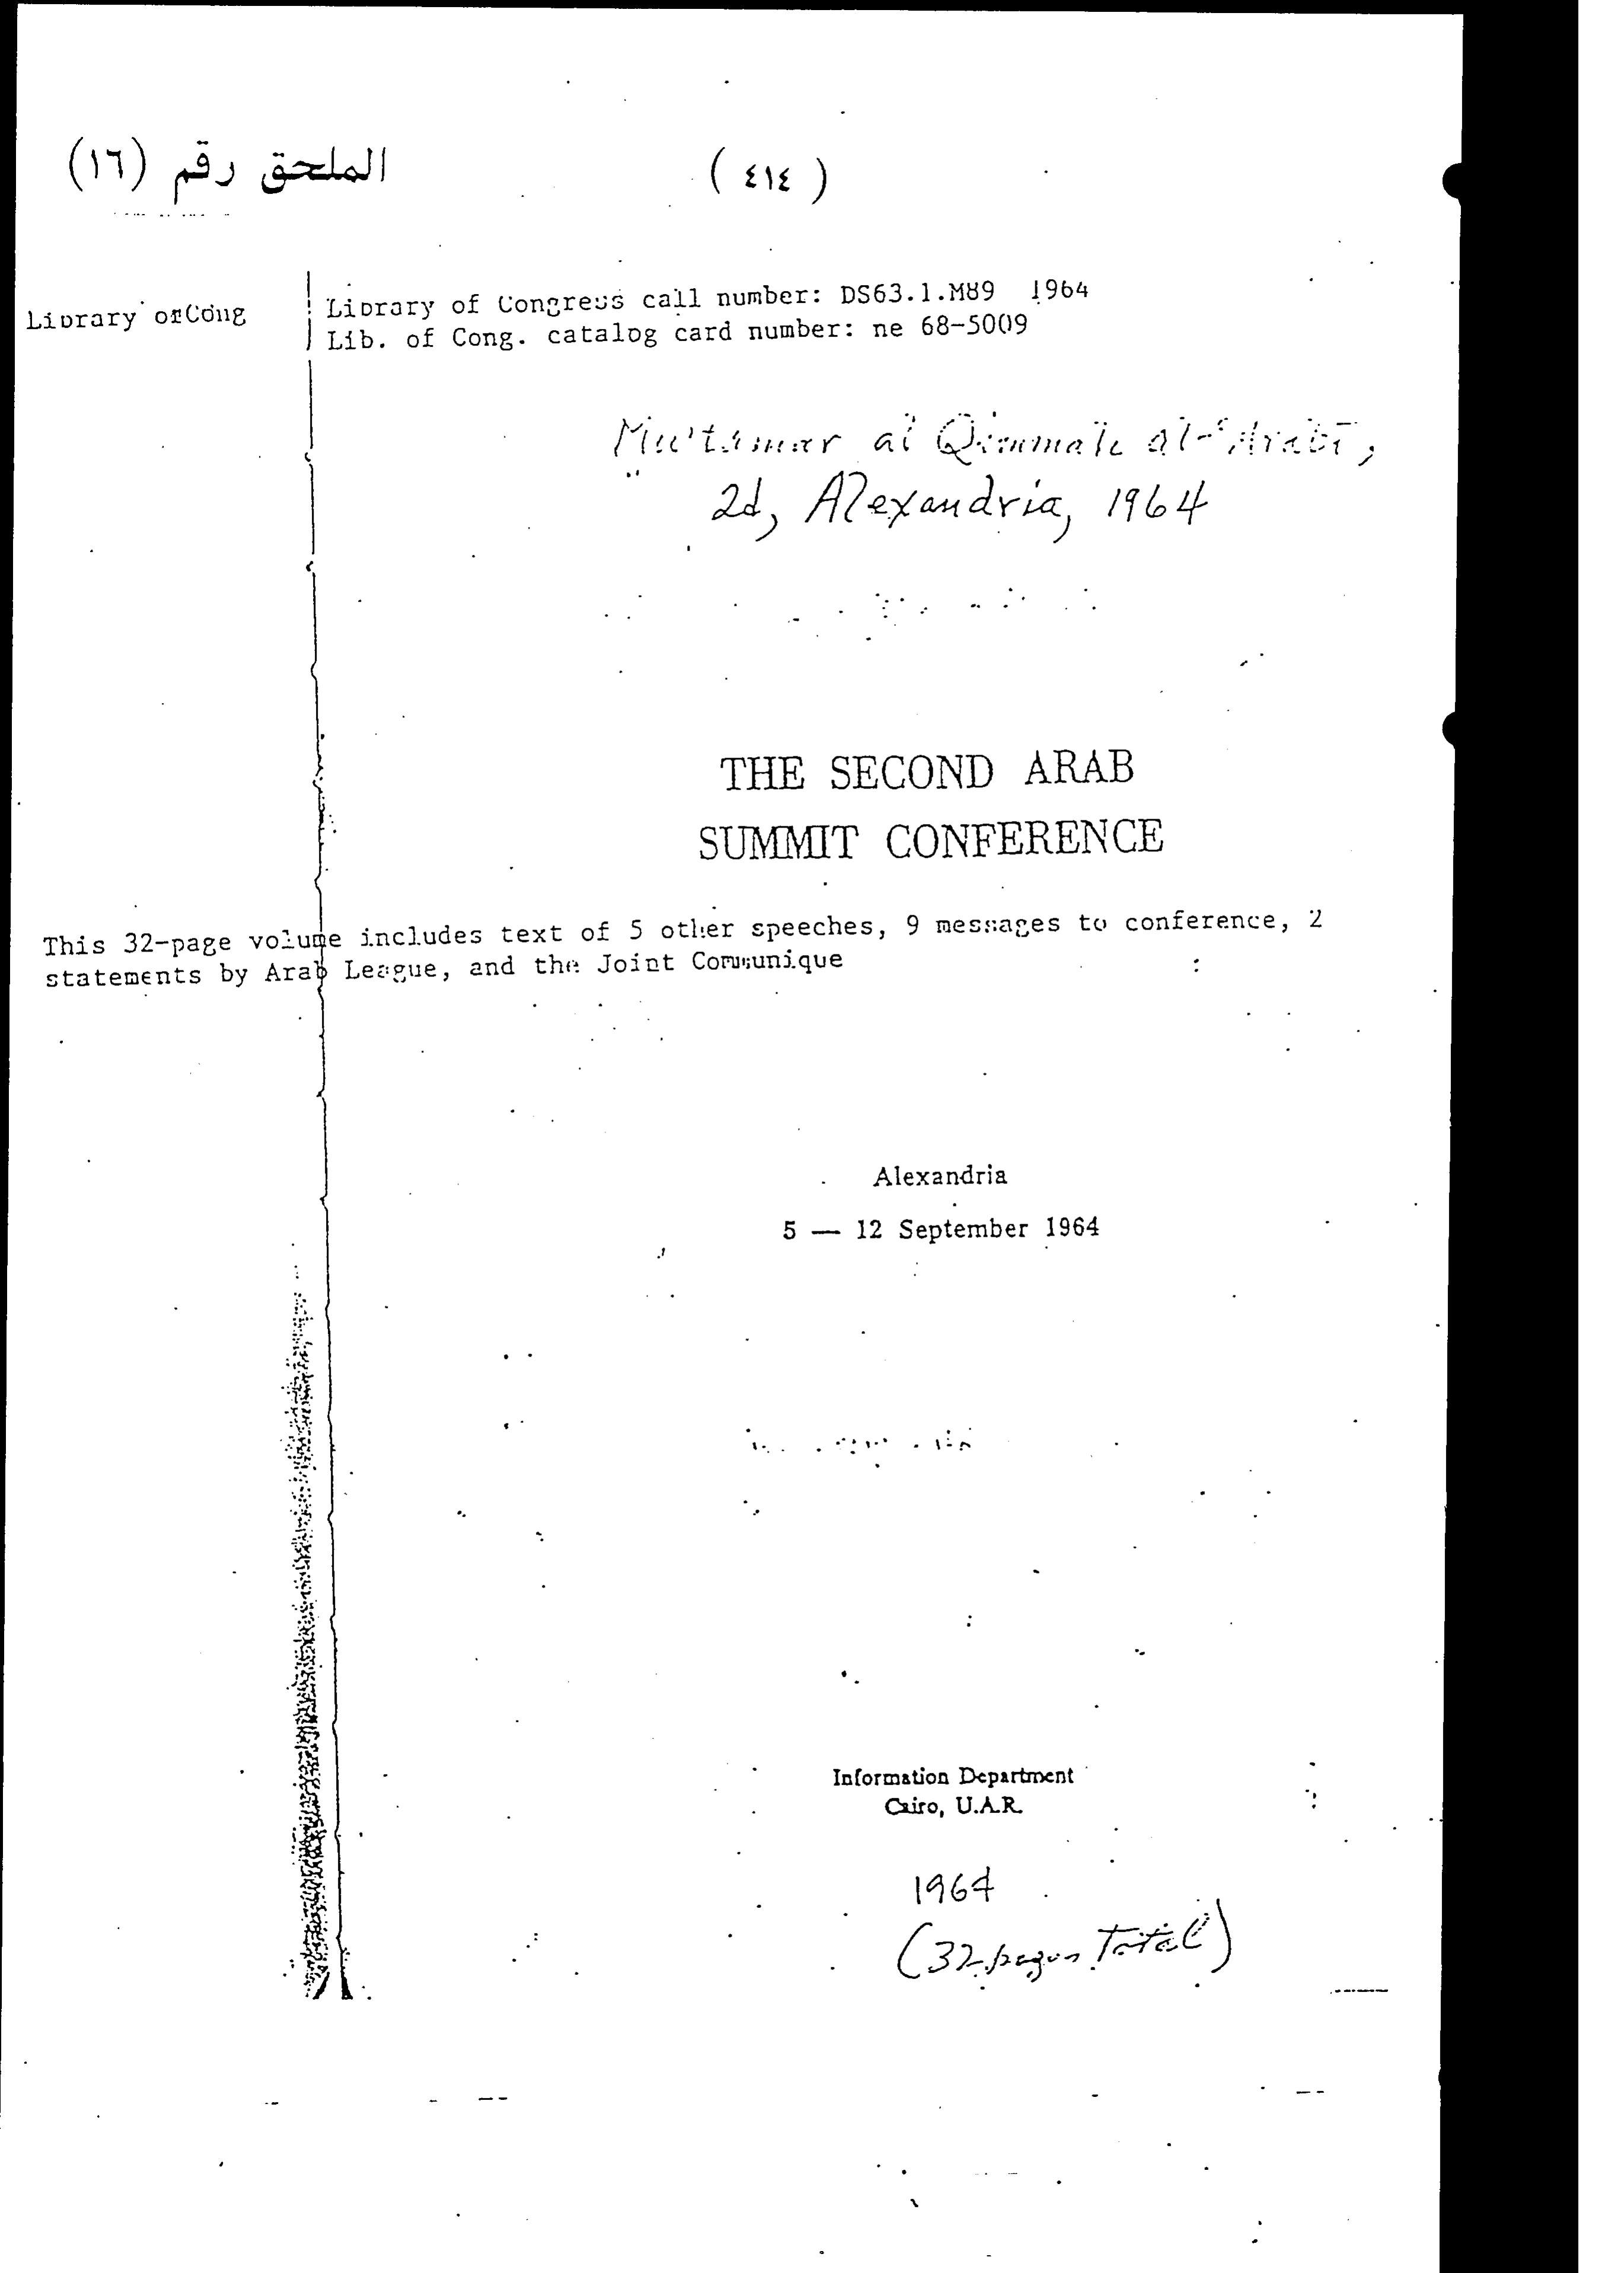 الملحق رقم (١٦)
( ٤١٤ )
Library of Cong
Library of Congress call number: DS63.1.M89 1964
Lib. of Cong. catalog card number: ne 68-5009
Mu'tamar al Qimmah al-ʿArabī,
2d, Alexandria, 1964
THE SECOND ARAB
SUMMIT CONFERENCE
This 32-page volume includes text of 5 other speeches, 9 messages to conference, 2
statements by Arab League, and the Joint Communique
Alexandria
5 — 12 September 1964
Information Department
Cairo, U.A.R.
1964
(32 pages Total)